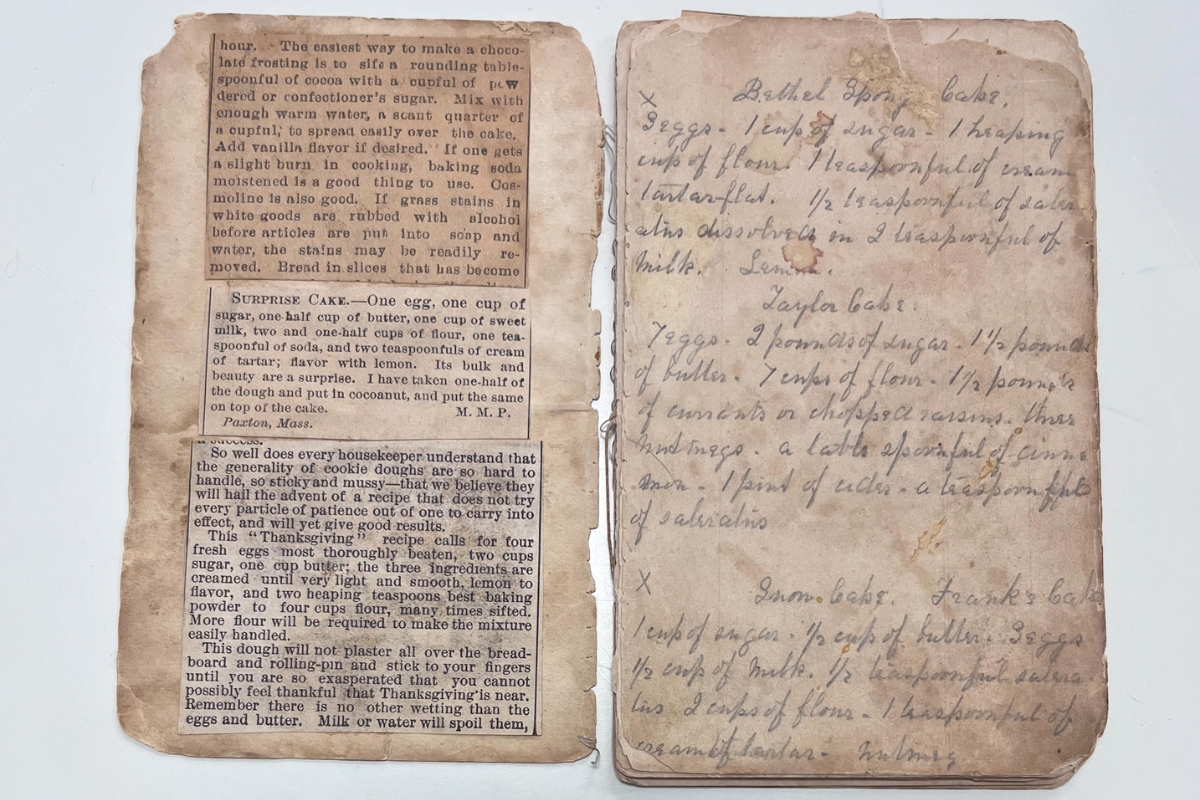 hour. The easiest way to make a choco-
late frosting is to sift a rounding table-
spoonful of cocoa with a cupful of pow
dered or confectioner's sugar. Mix with
enough warm water, a scant quarter of
a cupful, to spread easily over the cake.
Add vanilla flavor if desired. If one gets
a slight burn in cooking, baking soda
moistened is a good thing to use. Cos-
moline is also good. If grass stains in
white goods are rubbed with alcohol
before articles are put into soap and
water, the stains may be readily re-
moved. Bread in slices that has become
SURPRISE CAKE.—One egg, one cup of
sugar, one-half cup of butter, one cup of sweet
milk, two and one-half cups of flour, one tea-
spoonful of soda, and two teaspoonfuls of cream
of tartar; flavor with lemon. Its bulk and
beauty are a surprise. I have taken one-half of
the dough and put in cocoanut, and put the same
on top of the cake. M. M. P.
Paxton, Mass.
a success.
So well does every housekeeper understand that
the generality of cookie doughs are so hard to
handle, so sticky and mussy—that we believe they
will hail the advent of a recipe that does not try
every particle of patience out of one to carry into
effect, and will yet give good results.
This "Thanksgiving" recipe calls for four
fresh eggs most thoroughly beaten, two cups
sugar, one cup butter; the three ingredients are
creamed until very light and smooth, lemon to
flavor, and two heaping teaspoons best baking
powder to four cups flour, many times sifted.
More flour will be required to make the mixture
easily handled.
This dough will not plaster all over the bread-
board and rolling-pin and stick to your fingers
until you are so exasperated that you cannot
possibly feel thankful that Thanksgiving is near.
Remember there is no other wetting than the
eggs and butter. Milk or water will spoil them,
x Bethel Spong Cake.
3 eggs - 1 cup of sugar - 1 heaping
cup of flour. 1 teaspoonful of cream
tartar flat. 1/2 teaspoonful of saler
atus dissolved in 2 teaspoonful of
Milk. Lemon.
Taylor Cake.
7 eggs - 2 pounds of sugar - 1 1/2 pounds
of butter - 7 cups of flour - 1 1/2 pounds
of currants or chopped raisins. three
nutmegs - a table spoonful of cinna
mon - 1 pint of cider - a teaspoonful
of saleratus
x Snow Cake. Frank's Cake
1 cup of sugar - 1/2 cup of butter - 3 eggs
1/2 cup of Milk. 1/2 teaspoonful salera
tus 2 cups of flour - 1 teaspoonful of
cream of tartar - nutmeg